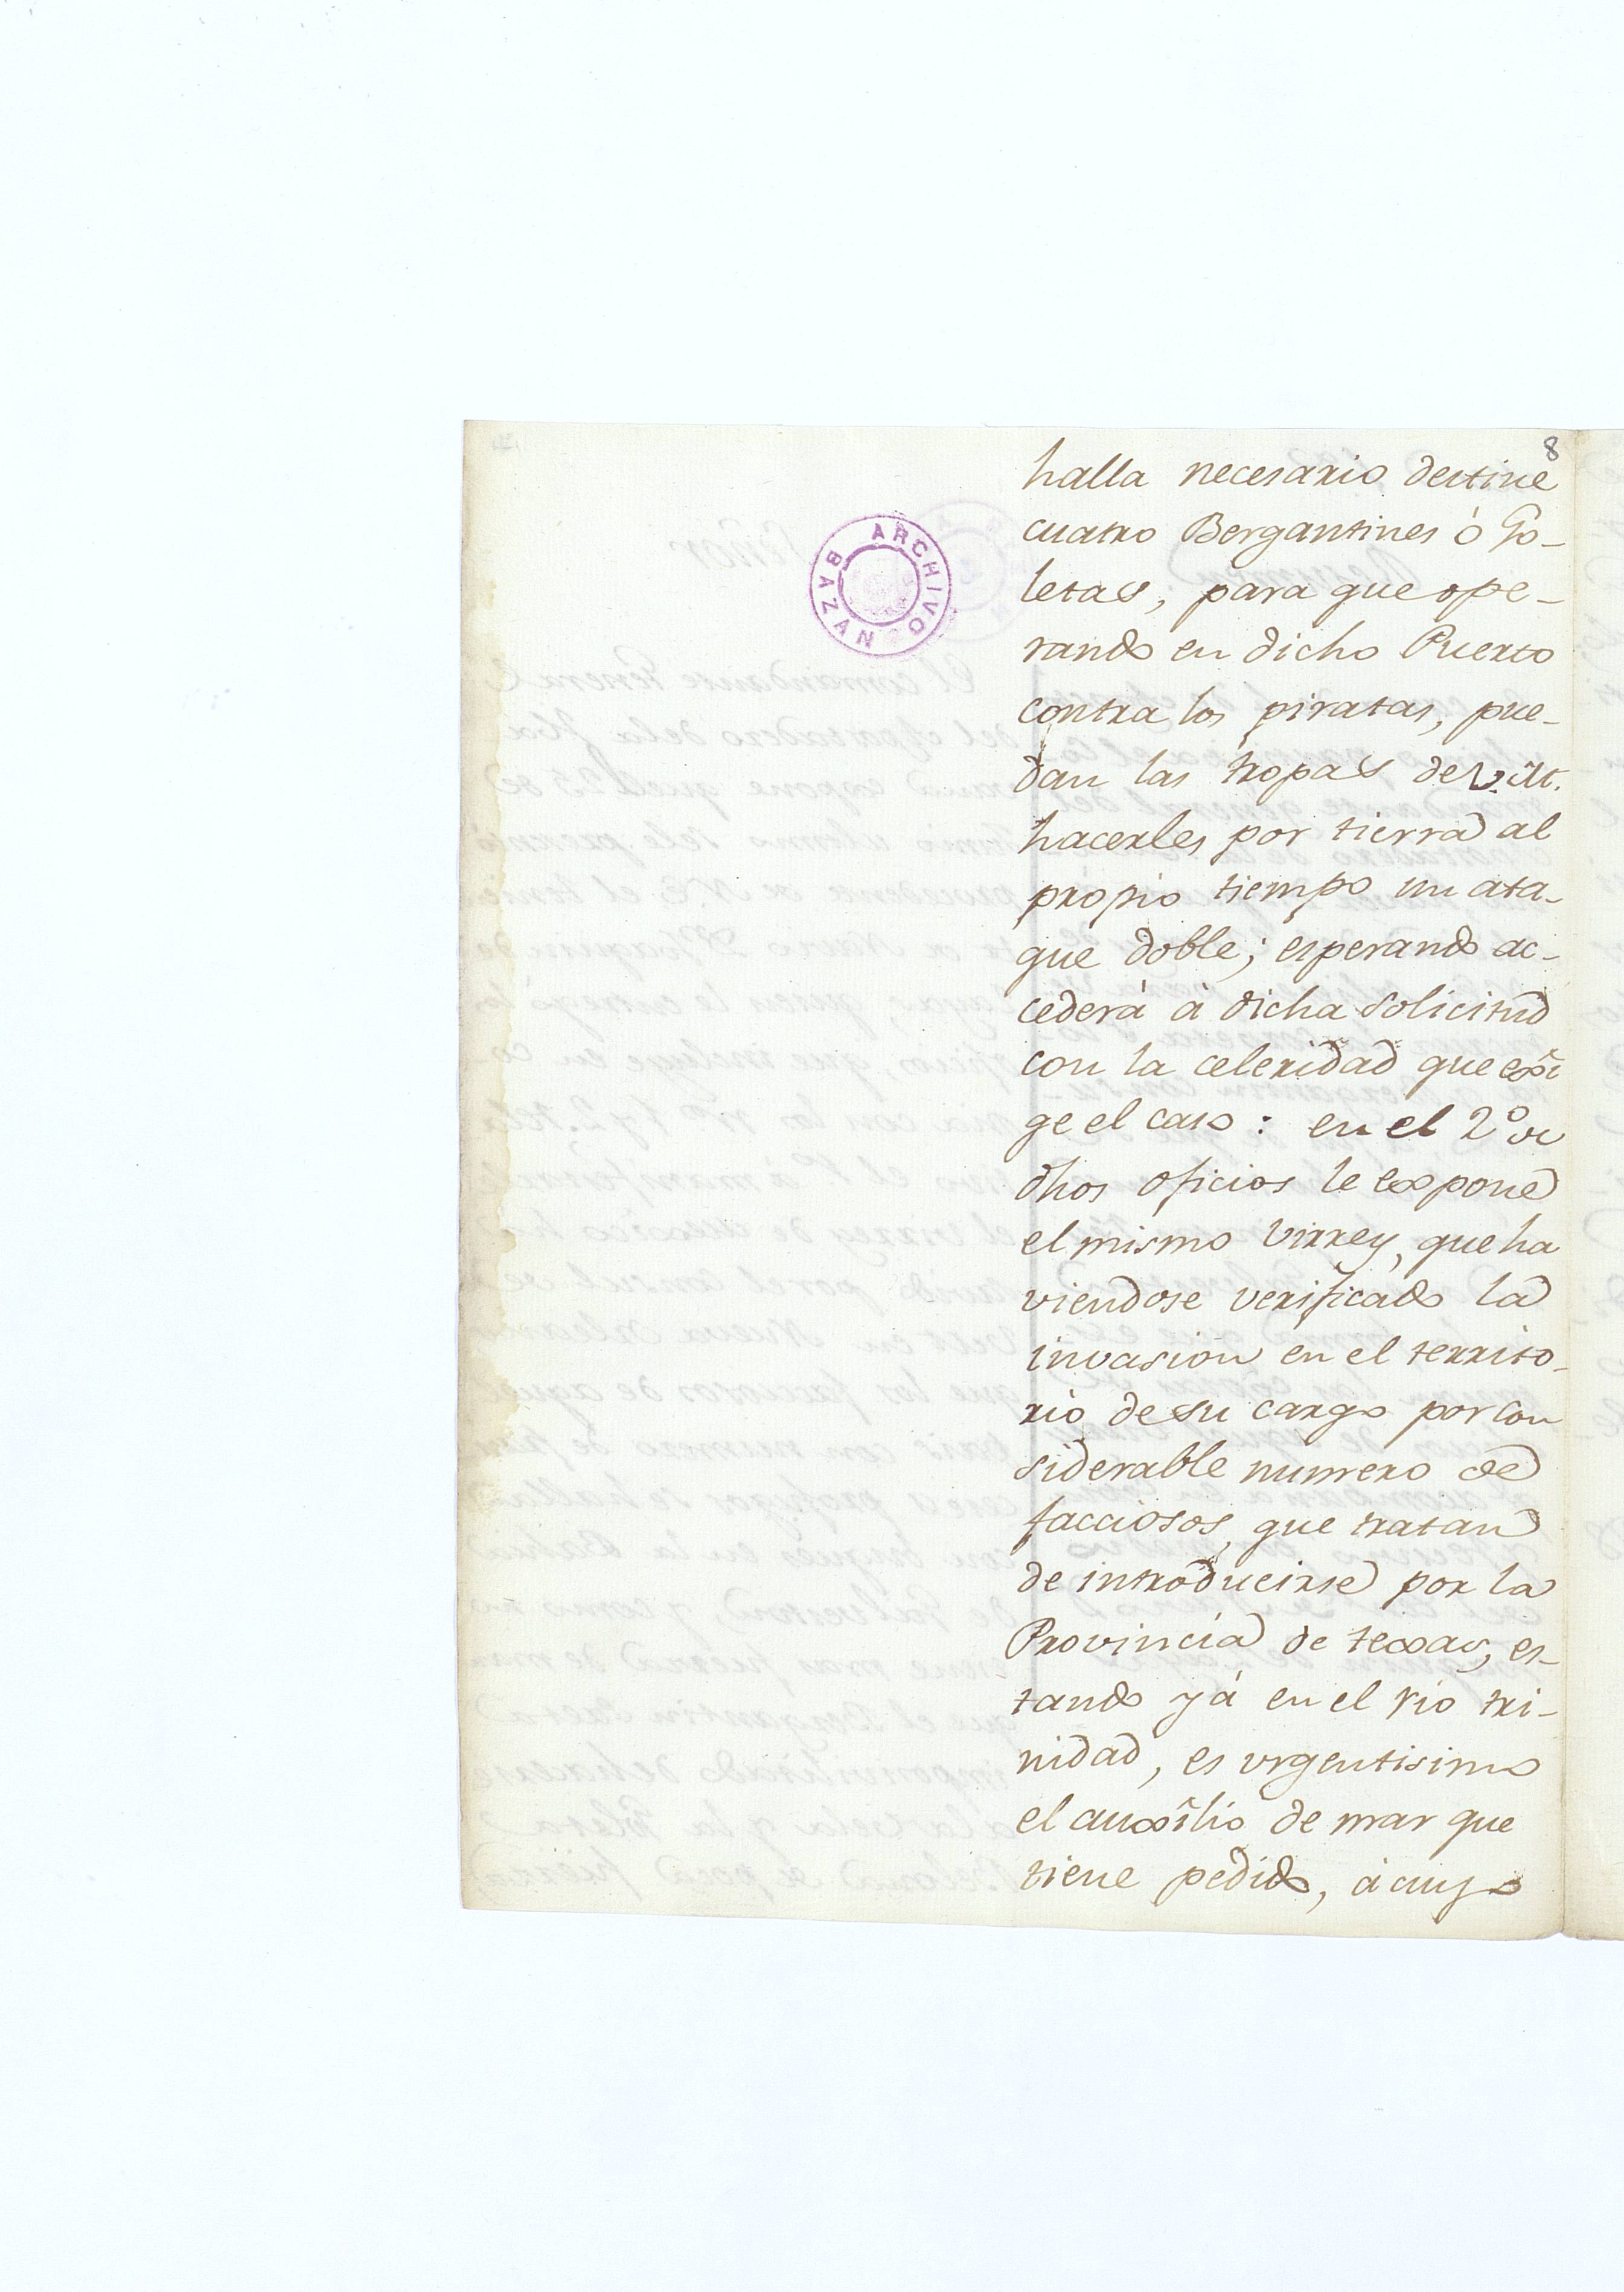 8
halla necesario destine
cuatro Bergantines ò Go-
letas, para que ope-
rando en dicho Puerto
contra los piratas, pue-
dan las tropas de V. M.
hacerles por tierra al
propio tiempo un ata-
que doble; esperando ac-
cederà à dicha solicitud
con la celeridad que exî
ge el caso: en el 2º de
dhos oficios le expone
el mismo Virrey, que ha
viendose verificado la
invasion en el territo-
rio de su cargo por con
siderable numero de
facciosos, que tratan
de introducirse por la
Provincia de texas, es-
tando yá en el rio tri-
nidad, es urgentisimo
el auxîlio de mar que
tiene pedido, à cuyo
ARCHIVO
BAZAN